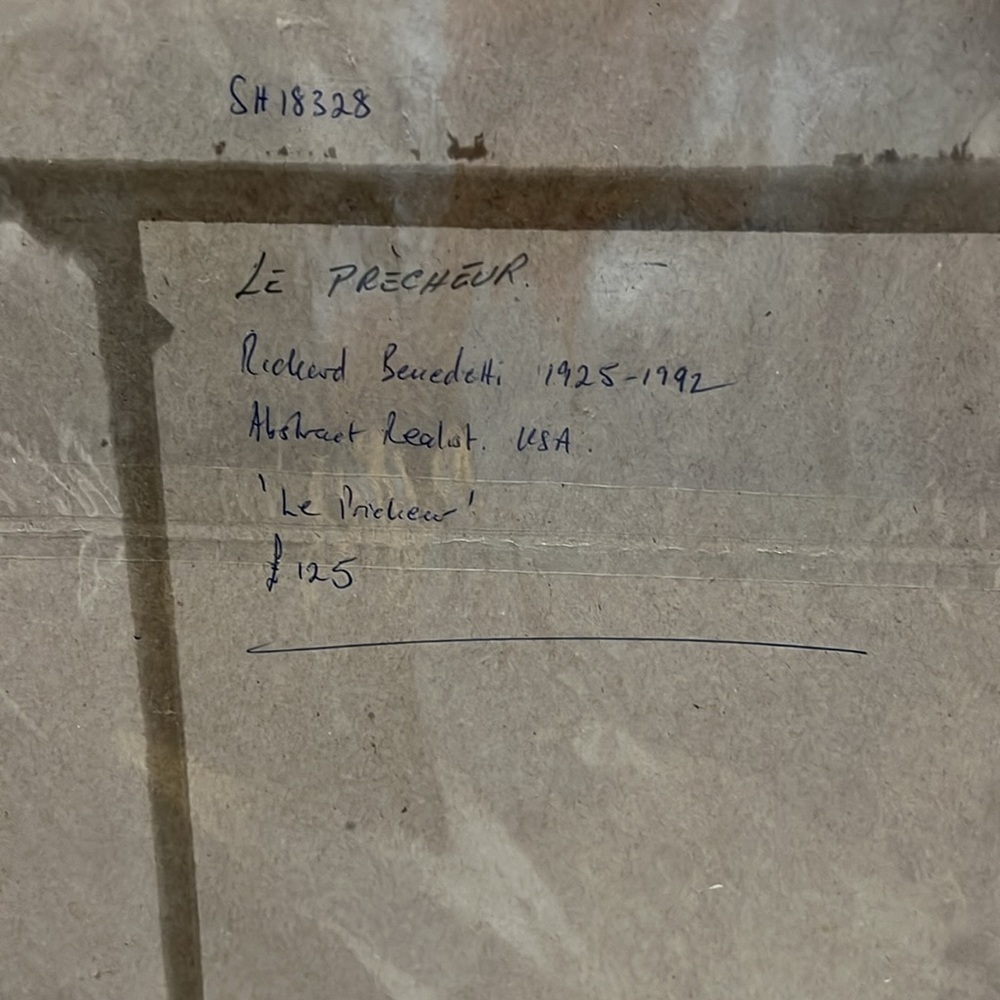 SH18328
LE PRÈCHEUR.
Richard Benedetti 1925-1992
Abstract Realist. USA.
'Le Pricheur'
£125